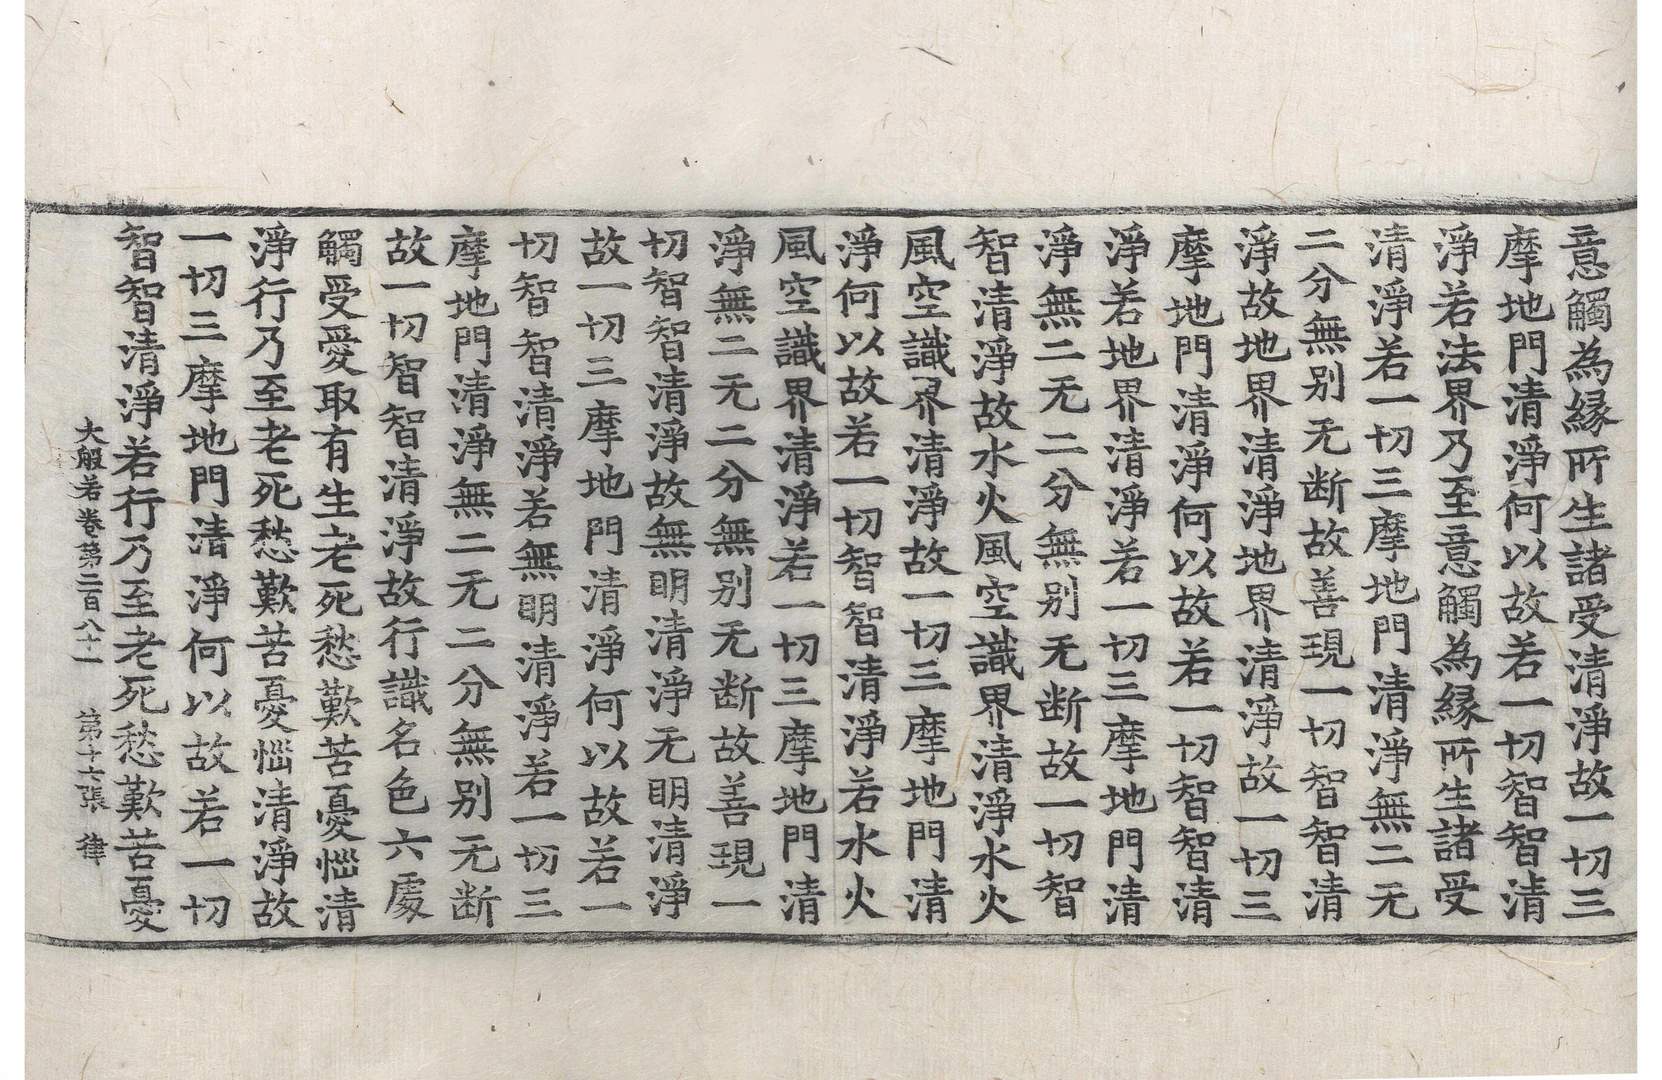 意觸為縁所生諸受清淨故一切三
摩地門清淨何以故若一切智智清
淨若法界乃至意觸為縁所生諸受
清淨若一切三摩地門清淨無二无
二分無别无断故善現一切智智清
淨故地界清淨地界清淨故一切三
摩地門清淨何以故若一切智智清
淨若地界清淨若一切三摩地門清
淨無二无二分無别无断故一切智
智清淨故水火風空識界清淨水火
風空識界清淨故一切三摩地門清
淨何以故若一切智智清淨若水火
風空識界清淨若一切三摩地門清
淨無二无二分無别无断故善現一
切智智清淨故無明清淨无明清淨
故一切三摩地門清淨何以故若一
切智智清淨若無明清淨若一切三
摩地門清淨無二无二分無别无断
故一切智智清淨故行識名色六處
觸受愛取有生老死愁歎苦憂惱清
淨行乃至老死愁歎苦憂惱清淨故
一切三摩地門清淨何以故若一切
智智清淨若行乃至老死愁歎苦憂
大般若卷第二百八十一 第十六張 律